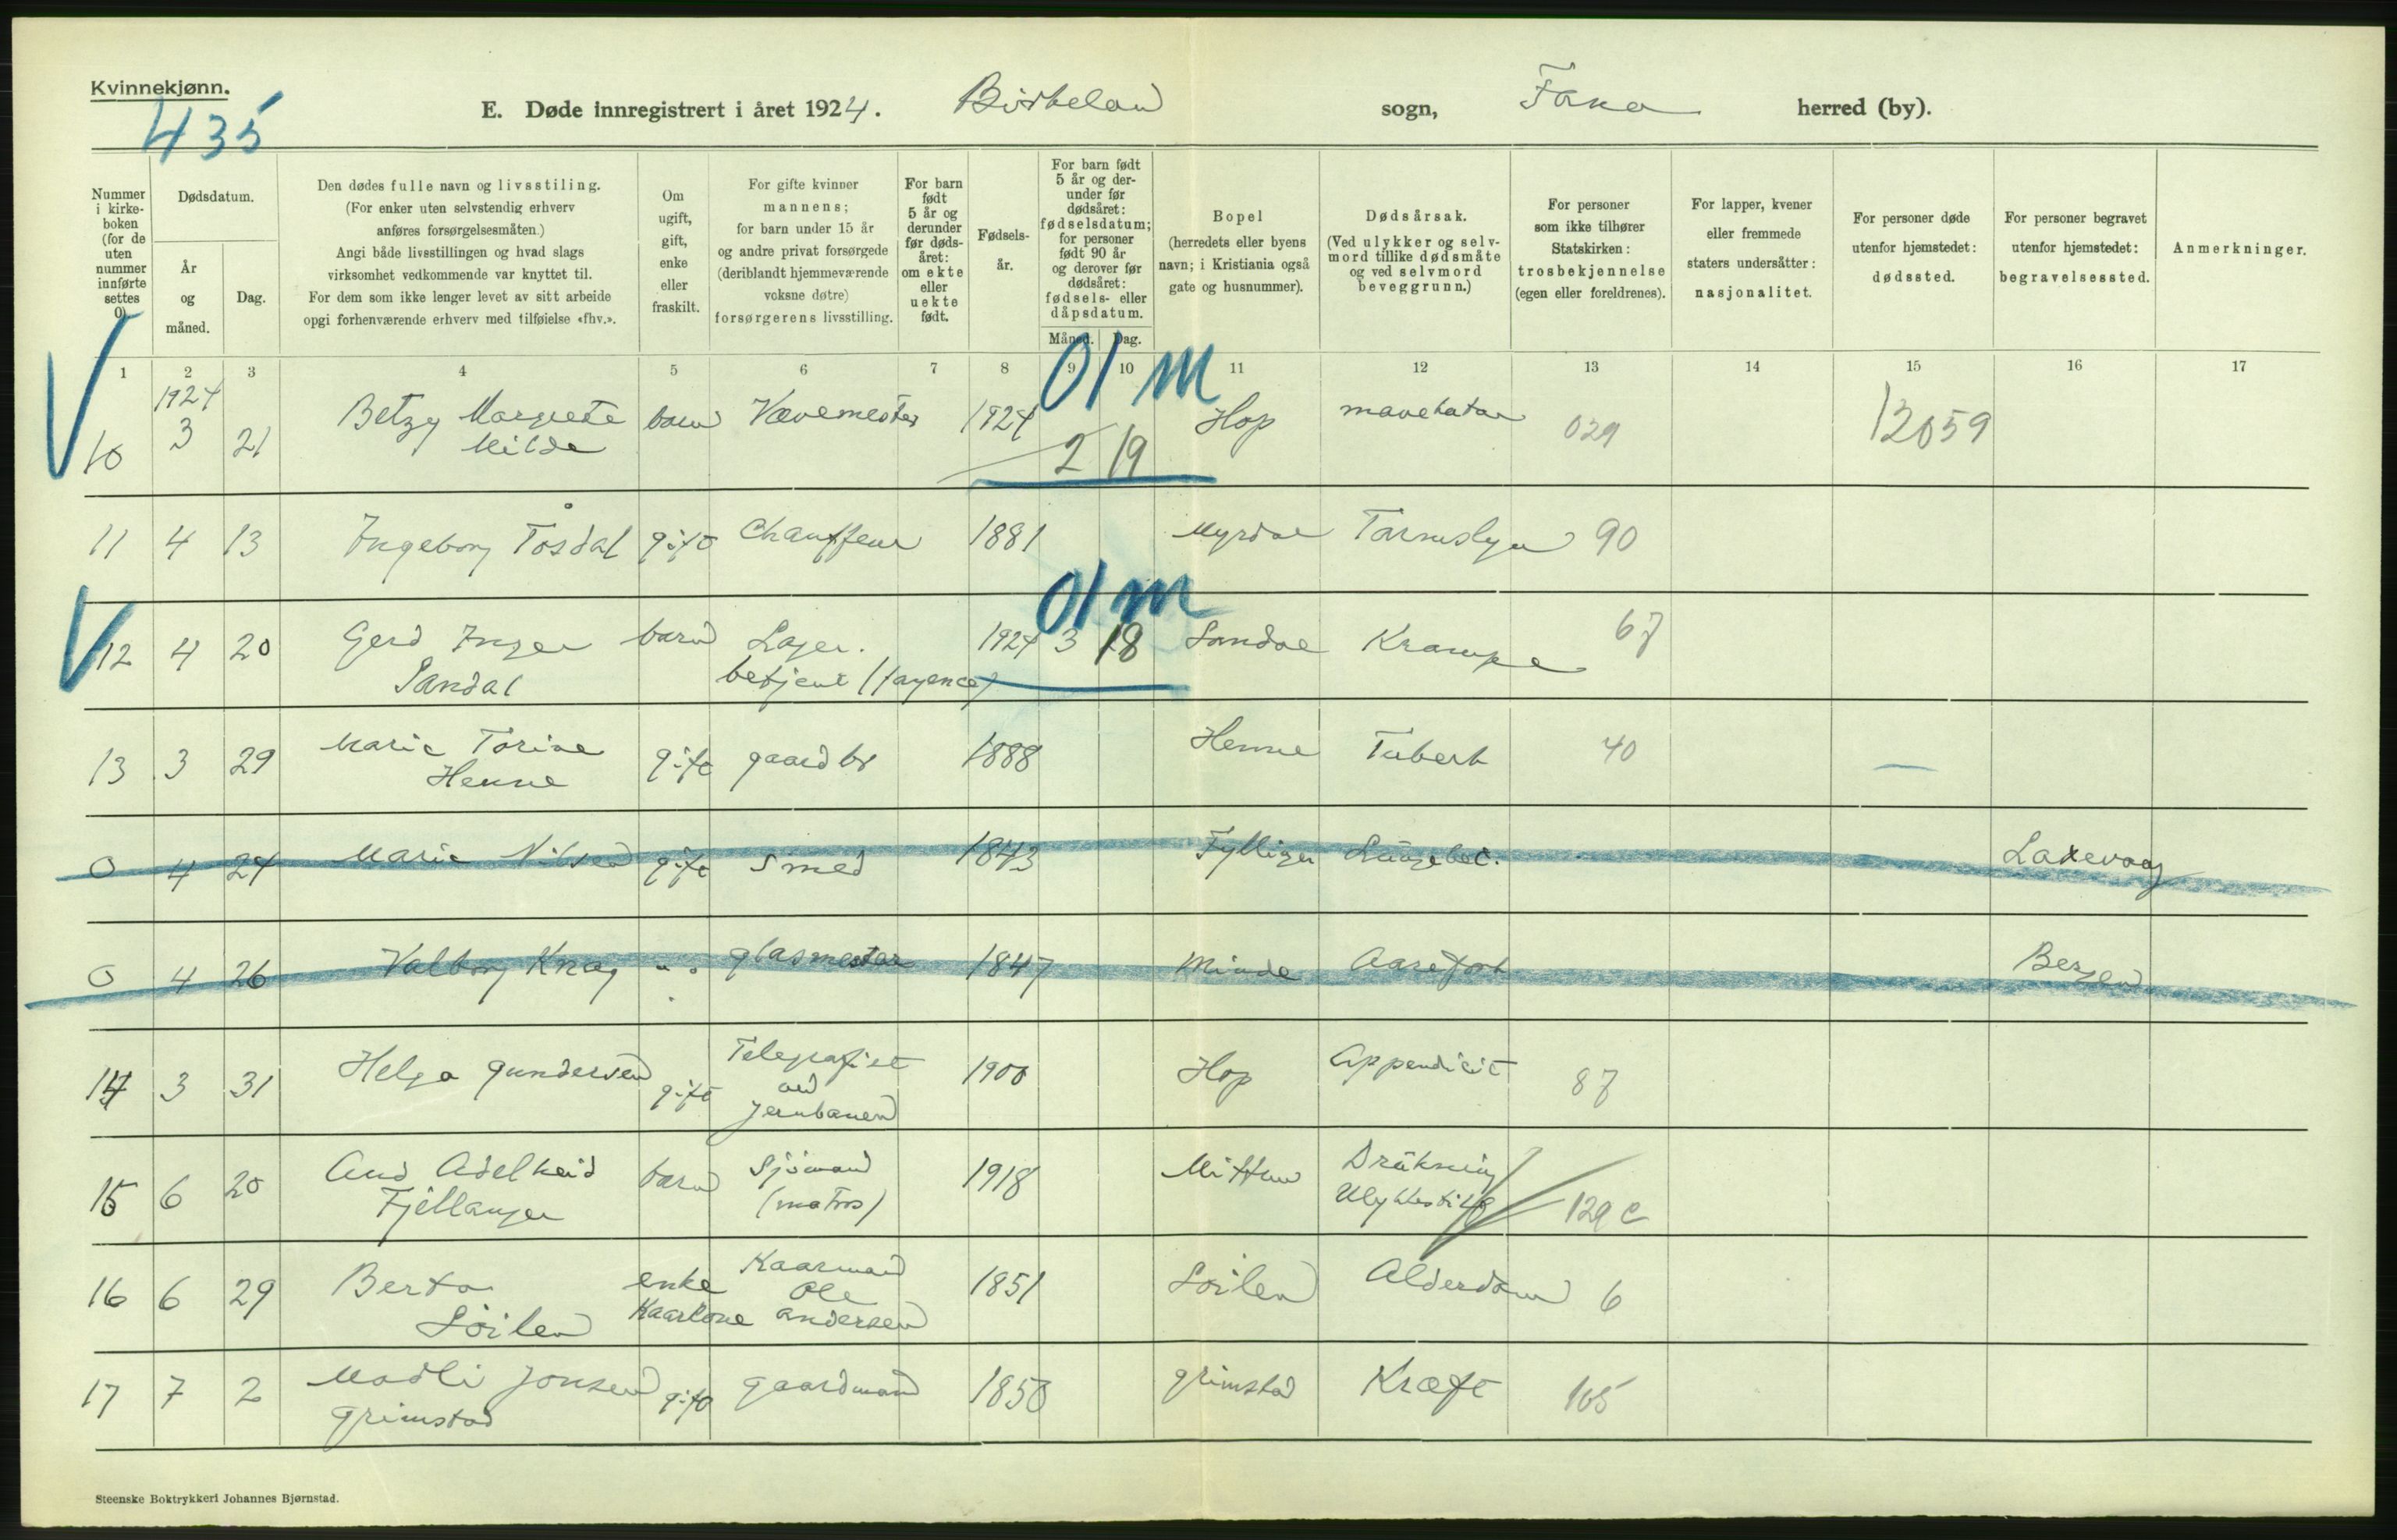 Kvinnekjønn.
435
E. Døde innregistrert i året 1924. Birkeland sogn, Fana herred (by).
Nummer i kirke-boken (for de uten nummer innførte settes 0).
Dødsdatum.
År og måned.
Dag.
Den dødes fulle navn og livsstiling.
(For enker uten selvstendig erhverv
anføres forsørgelsesmåten.)
Angi både livsstillingen og hvad slags
virksomhet vedkommende var knyttet til.
For dem som ikke lenger levet av sitt arbeide
opgi forhenværende erhverv med tilføielse «fhv.».
Om ugift, gift, enke eller fraskilt.
For gifte kvinner
mannens;
for barn under 15 år
og andre privat forsørgede
(deriblandt hjemmeværende
voksne døtre)
forsørgerens livsstilling.
For barn født 5 år og derunder før døds-året: om ekte eller uekte født.
Fødsels-år.
For barn født 5 år og der-under før dødsåret: fødselsdatum; for personer født 90 år og derover før dødsåret: fødsels- eller dåpsdatum.
Måned. Dag.
Bopel
(herredets eller byens
navn; i Kristiania også
gate og husnummer).
Dødsårsak.
(Ved ulykker og selv-
mord tillike dødsmåte
og ved selvmord
beveggrunn.)
For personer
som ikke tilhører
Statskirken:
trosbekjennelse
(egen eller foreldrenes).
For lapper, kvener
eller fremmede
staters undersåtter:
nasjonalitet.
For personer døde
utenfor hjemstedet:
dødssted.
For personer begravet
utenfor hjemstedet:
begravelsessted.
Anmerkninger.
1 2 3 4 5 6 7 8 9 10 11 12 13 14 15 16 17
01 m
1924
10 3 21 Betzy Margrete Milde barn Vævemester 1924 2 19 Hop mavekatar 029 12059
11 4 13 Ingeborg Tosdal gift Chauffeur 1881 Myrdal Tarmslyn 90
01 m
12 4 20 Gerd Inger Sandal barn Lager. betjent (fayence) 1924 3 18 Sandal Krampe 67
13 3 29 Marie Torine Henne gift gaardbr 1888 Henne Tuberk 40
0 4 24 Marie Nilsen gift smed 1843 Lungebet. Laxevaag
0 4 26 Valborg Knag " glasmester 1847 Minde Aarefork Bergen
14 3 31 Helga Gundersen gift Telegrafist ved Jernbanen 1900 Hop Appendicit 87
15 6 20 Aud Adelheid Fjellanger barn Sjömand (matros) 1918 Mittun Drukning Ulykkestilf 129 c
16 6 29 Berta Löilen enke Kaarkone Kaarmand Ole Andersen 1851 Löilen Alderdom 6
17 7 2 Madli Jonsen Grimstad gift gaardmand 1850 Grimstad Kræft 105
Steenske Boktrykkeri Johannes Bjørnstad.